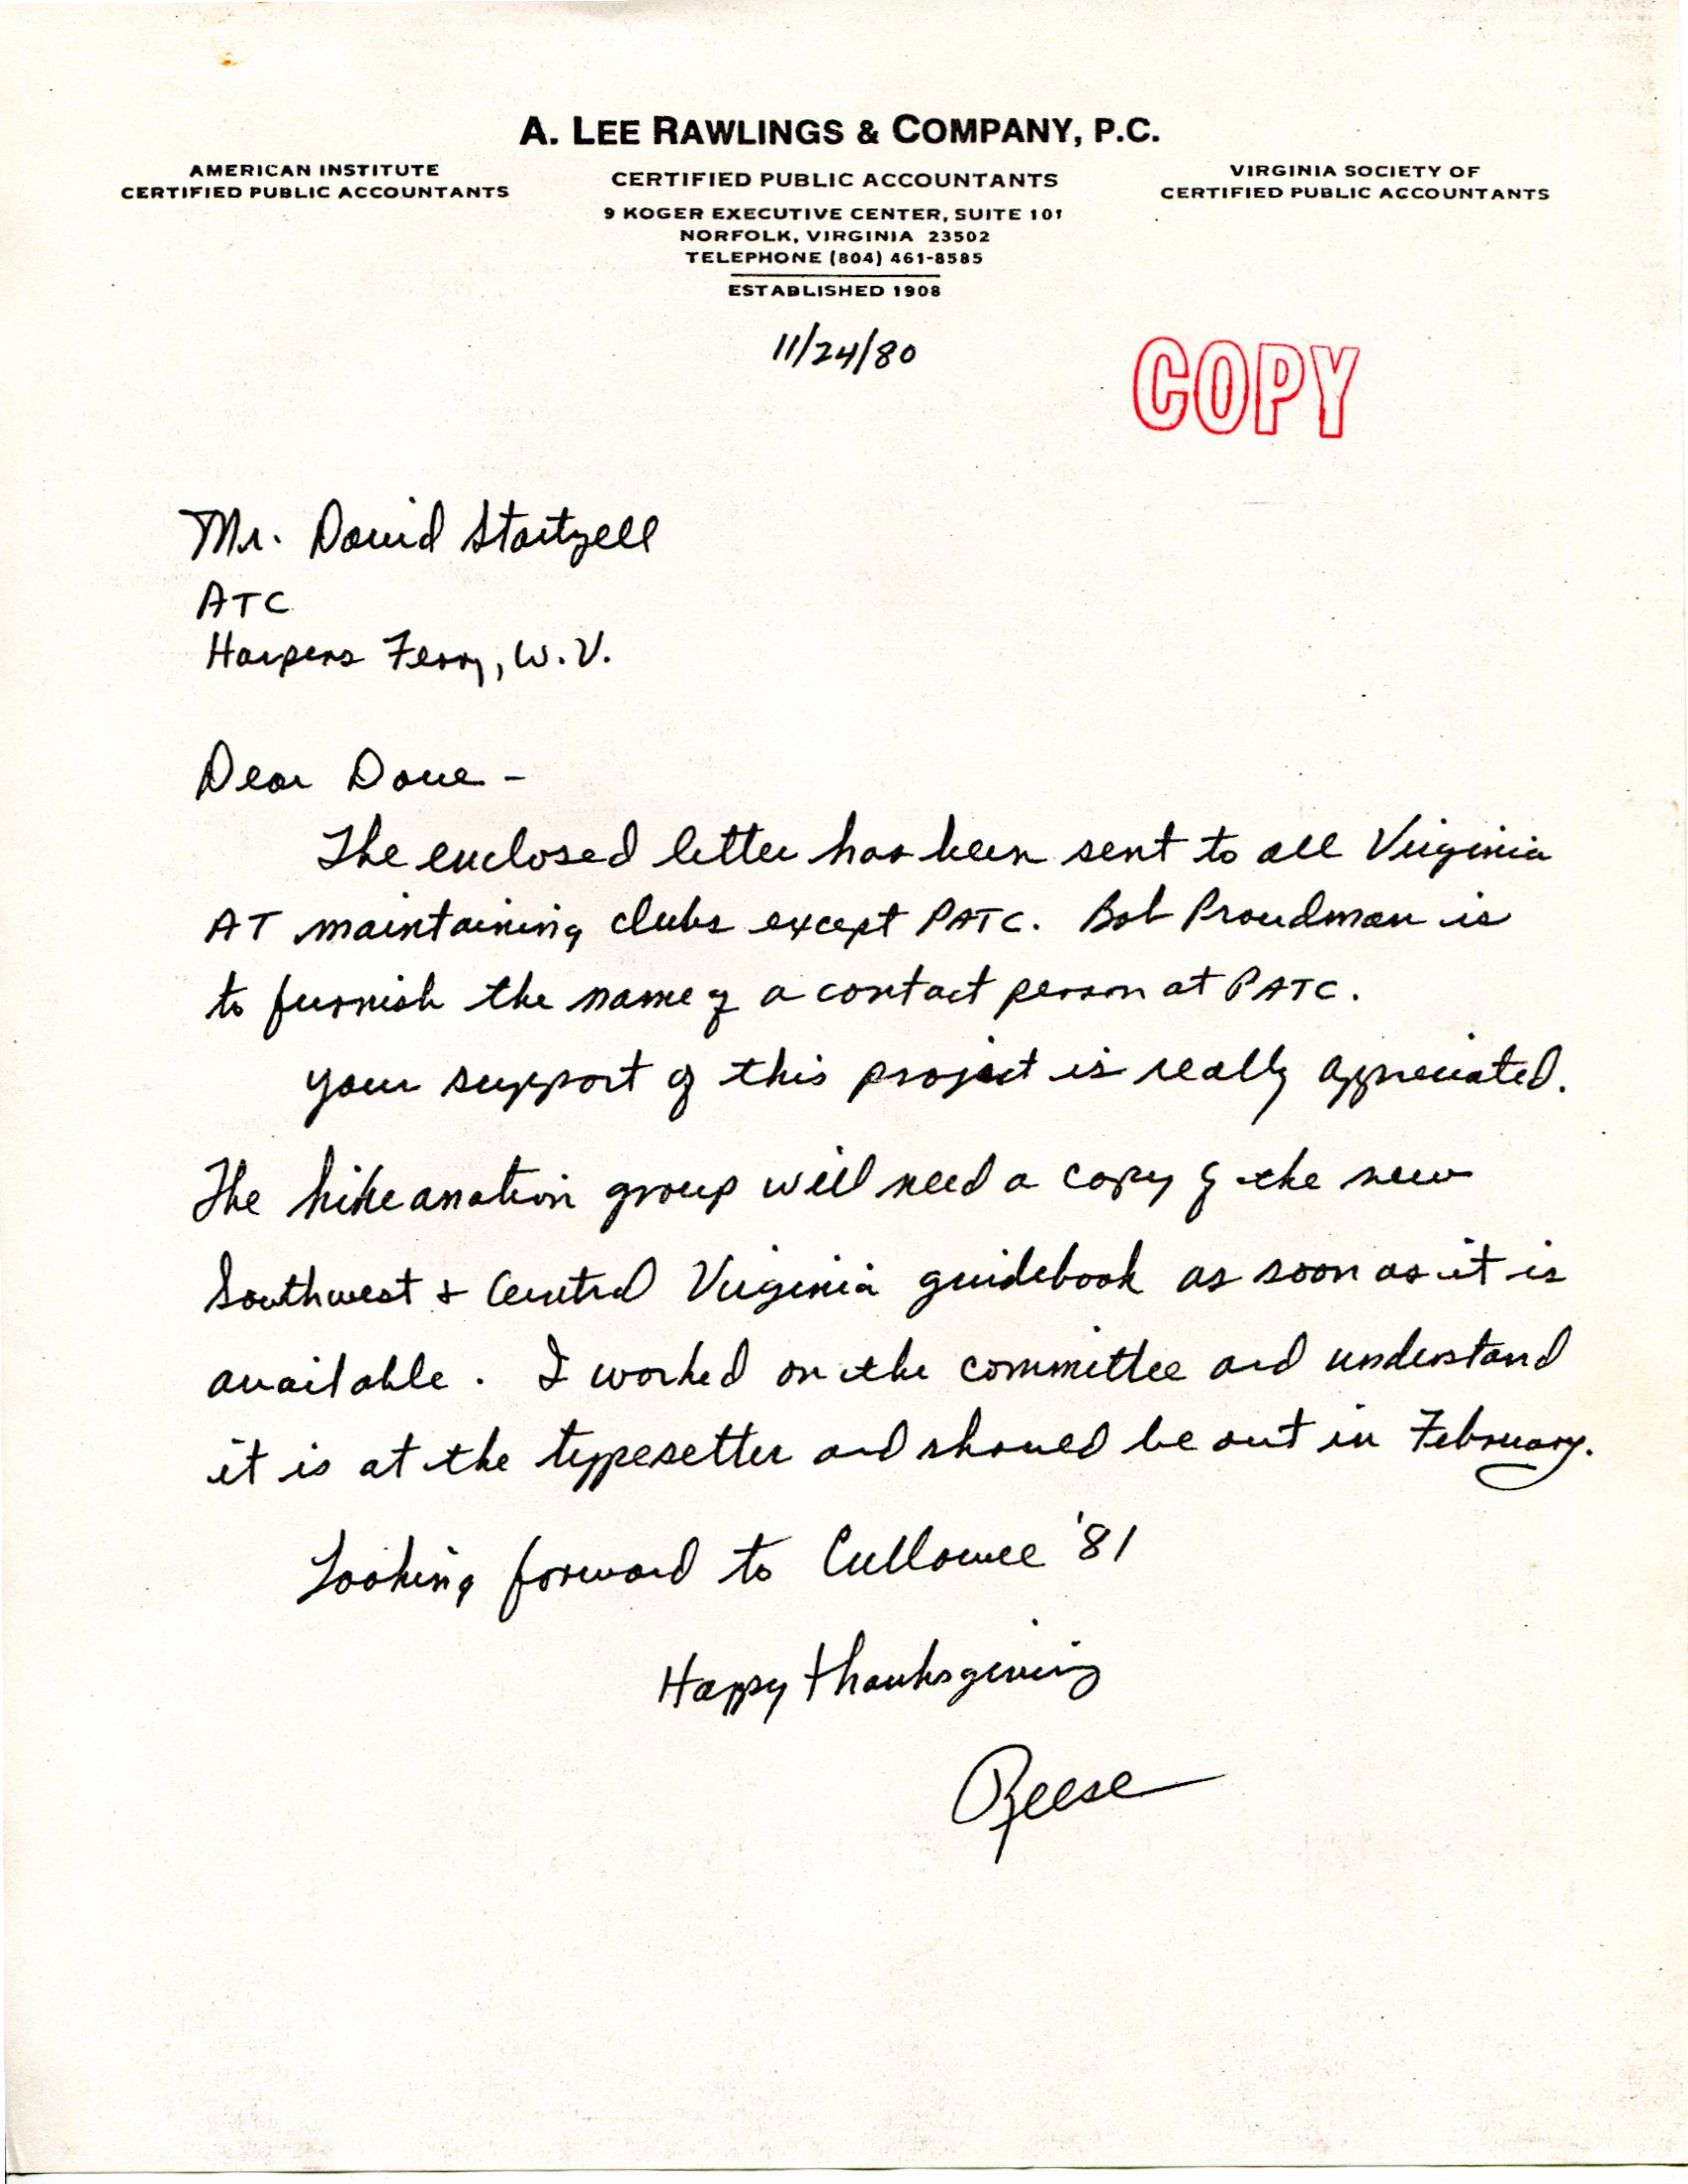 A. LEE RAWLINGS & COMPANY, P.C.
AMERICAN INSTITUTE
CERTIFIED PUBLIC ACCOUNTANTS
CERTIFIED PUBLIC ACCOUNTANTS
9 KOGER EXECUTIVE CENTER, SUITE 101
NORFOLK, VIRGINIA 23502
TELEPHONE (804) 461-8585
ESTABLISHED 1908
VIRGINIA SOCIETY OF
CERTIFIED PUBLIC ACCOUNTANTS
11/24/80
COPY
Mr. David Startzell
ATC
Harpers Ferry, W.V.
Dear Dave -
The enclosed letter has been sent to all Virginia
AT maintaining clubs except PATC. Bob Proudman is
to furnish the name of a contact person at PATC.
Your support of this project is really appreciated.
The hikeanation group will need a copy of the new
Southwest & Central Virginia guidebook as soon as it is
available. I worked on the committee and understand
it is at the typesetter and should be out in February.
Looking forward to Cullowee '81
Happy Thanksgiving
Reese